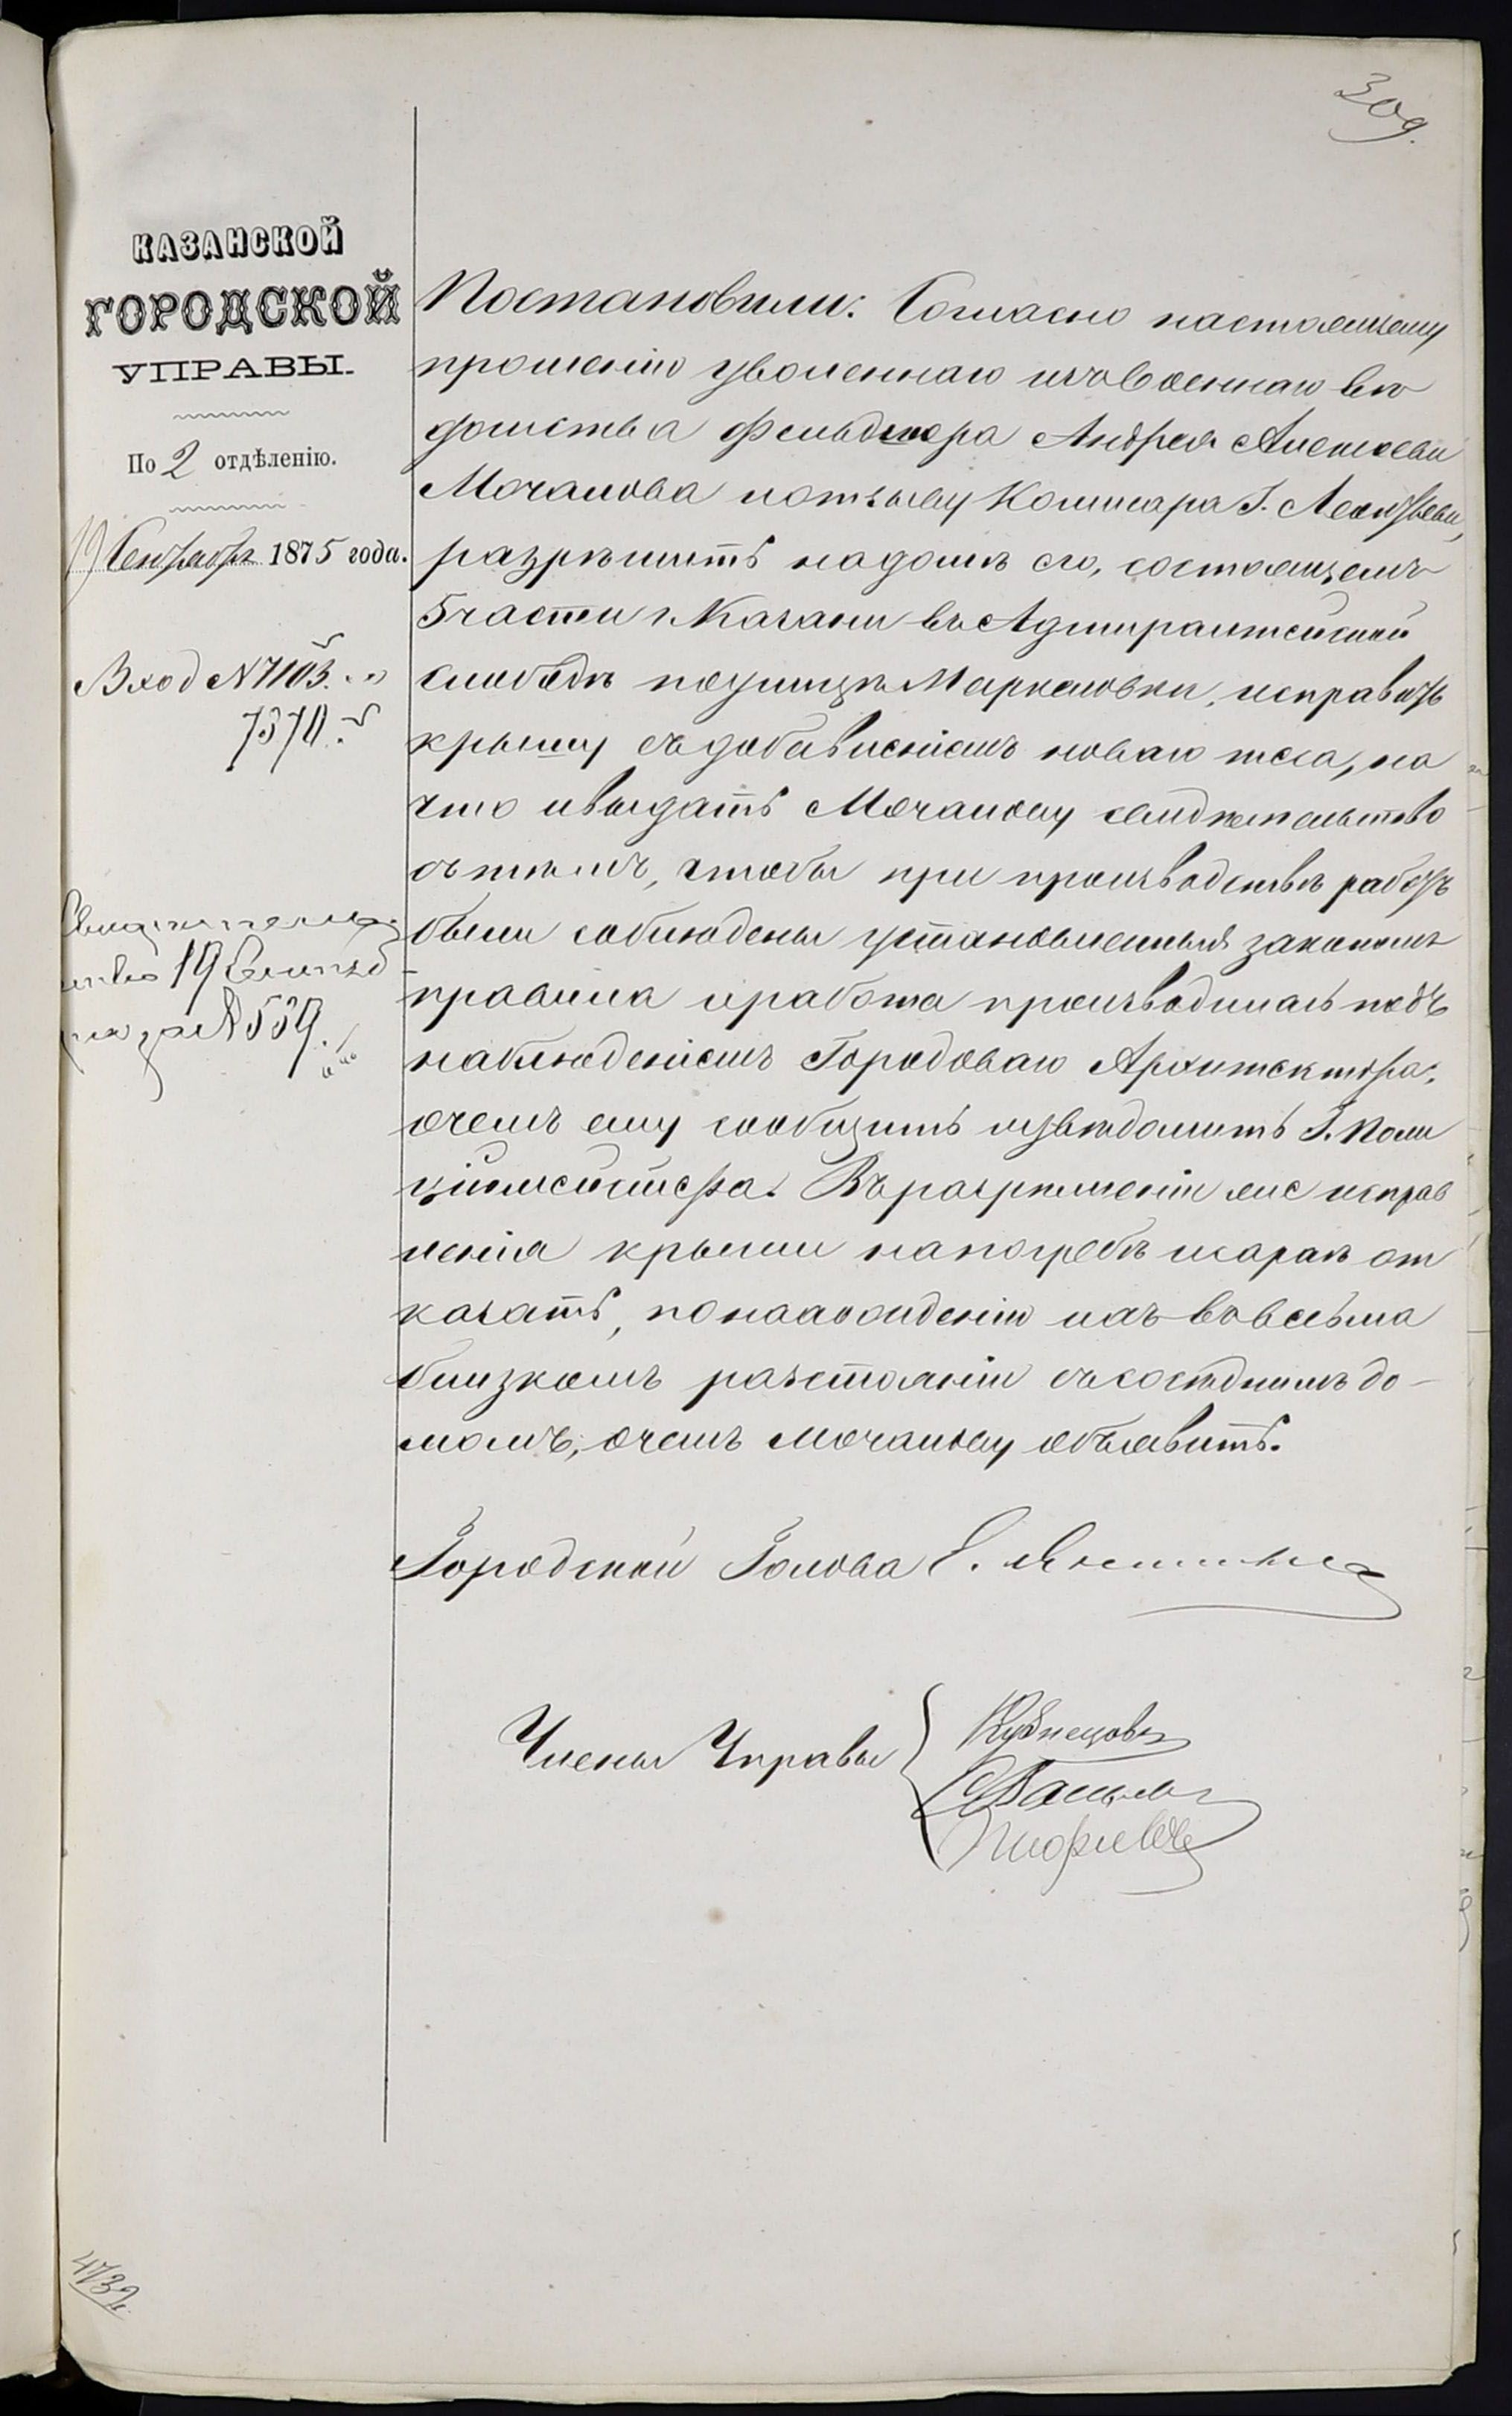 309.
КАЗАНСКОЙ
ГОРОДСКОЙ
УПРАВЫ.
По 2 отдѣленію.
19 Сентября 1875 года.
Вход № 7103.
7370.
Свидѣтель
ство 19 Сентяб
ря за № 539.
Постановили: Согласно настоящему
прошенію уволеннаго изъ Военнаго вѣ
домства Фельдшера Андрея Алексѣева
Мочалова и отзыву Комисара Г. Леонтьева,
разрѣшить на домѣ его, состоящемъ
5 части г. Казани въ Адмиралтейской
слободѣ по улицѣ Маркеловки, исправить
крышу съ добавленіемъ новаго теса, на
что и выдать Мочалову свидѣтельство
съ тѣмъ, чтобы при производствѣ работъ
были соблюдены установленныя закономъ
правила и работа производилась подъ
наблюденіемъ Городоваго Архитектора,
о чемъ ему сообщить и увѣдомить Г. Поли
ціймейстера. Въ разрѣшеніи же исправ
ленія крыши на погребѣ и сараѣ от
казать, по нахожденію ихъ въ весьма
близкомъ разстояніи съ сосѣднимъ до-
момъ, о чемъ Мочалову объявить.
Городской Голова Е. Янишевскій
Члены Управы
Кузнецовъ
4732